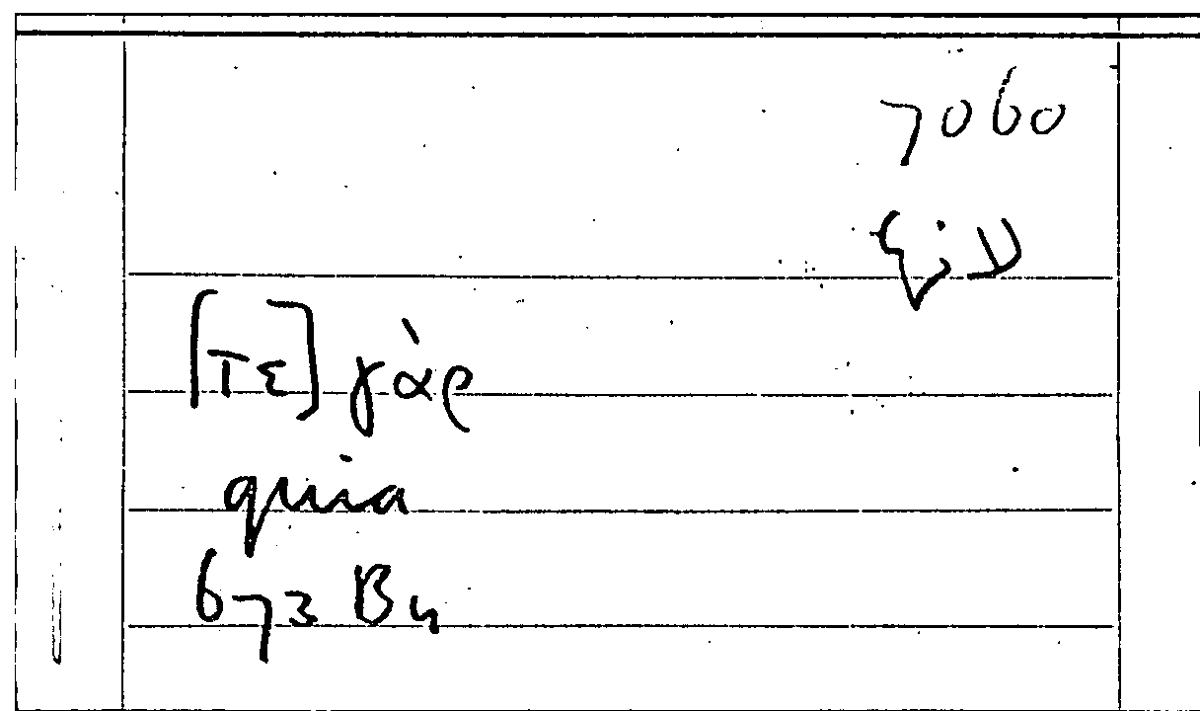 7060
لان
[τε] γὰρ
quia
673 B4